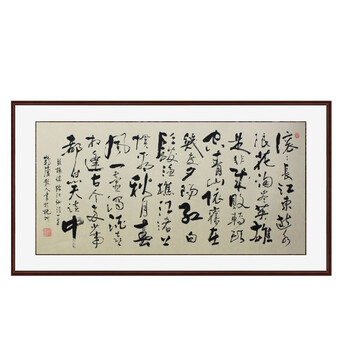 滚〻長江東逝水
浪花淘盡英雄
是非成敗轉頭
空青山依舊在
幾度夕陽紅白
髮漁樵江渚上
慣看秋月春
風一壺濁酒喜
相逢古今多少事
都付笑談中
楊慎臨江仙